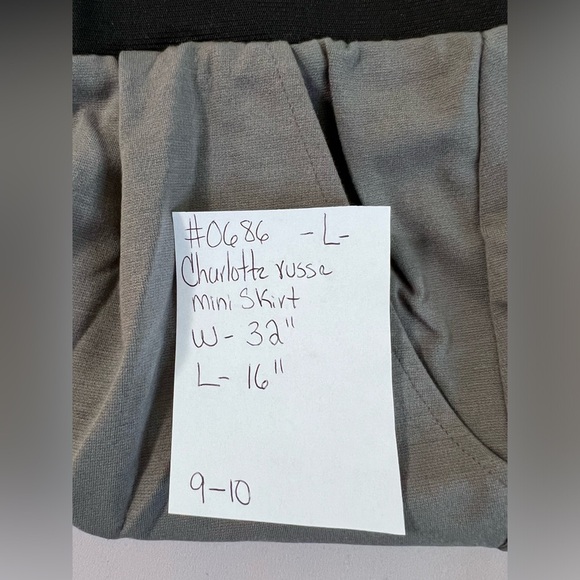 #0686 -L-
Charlotte russe
mini skirt
W- 32"
L- 16"
9-10